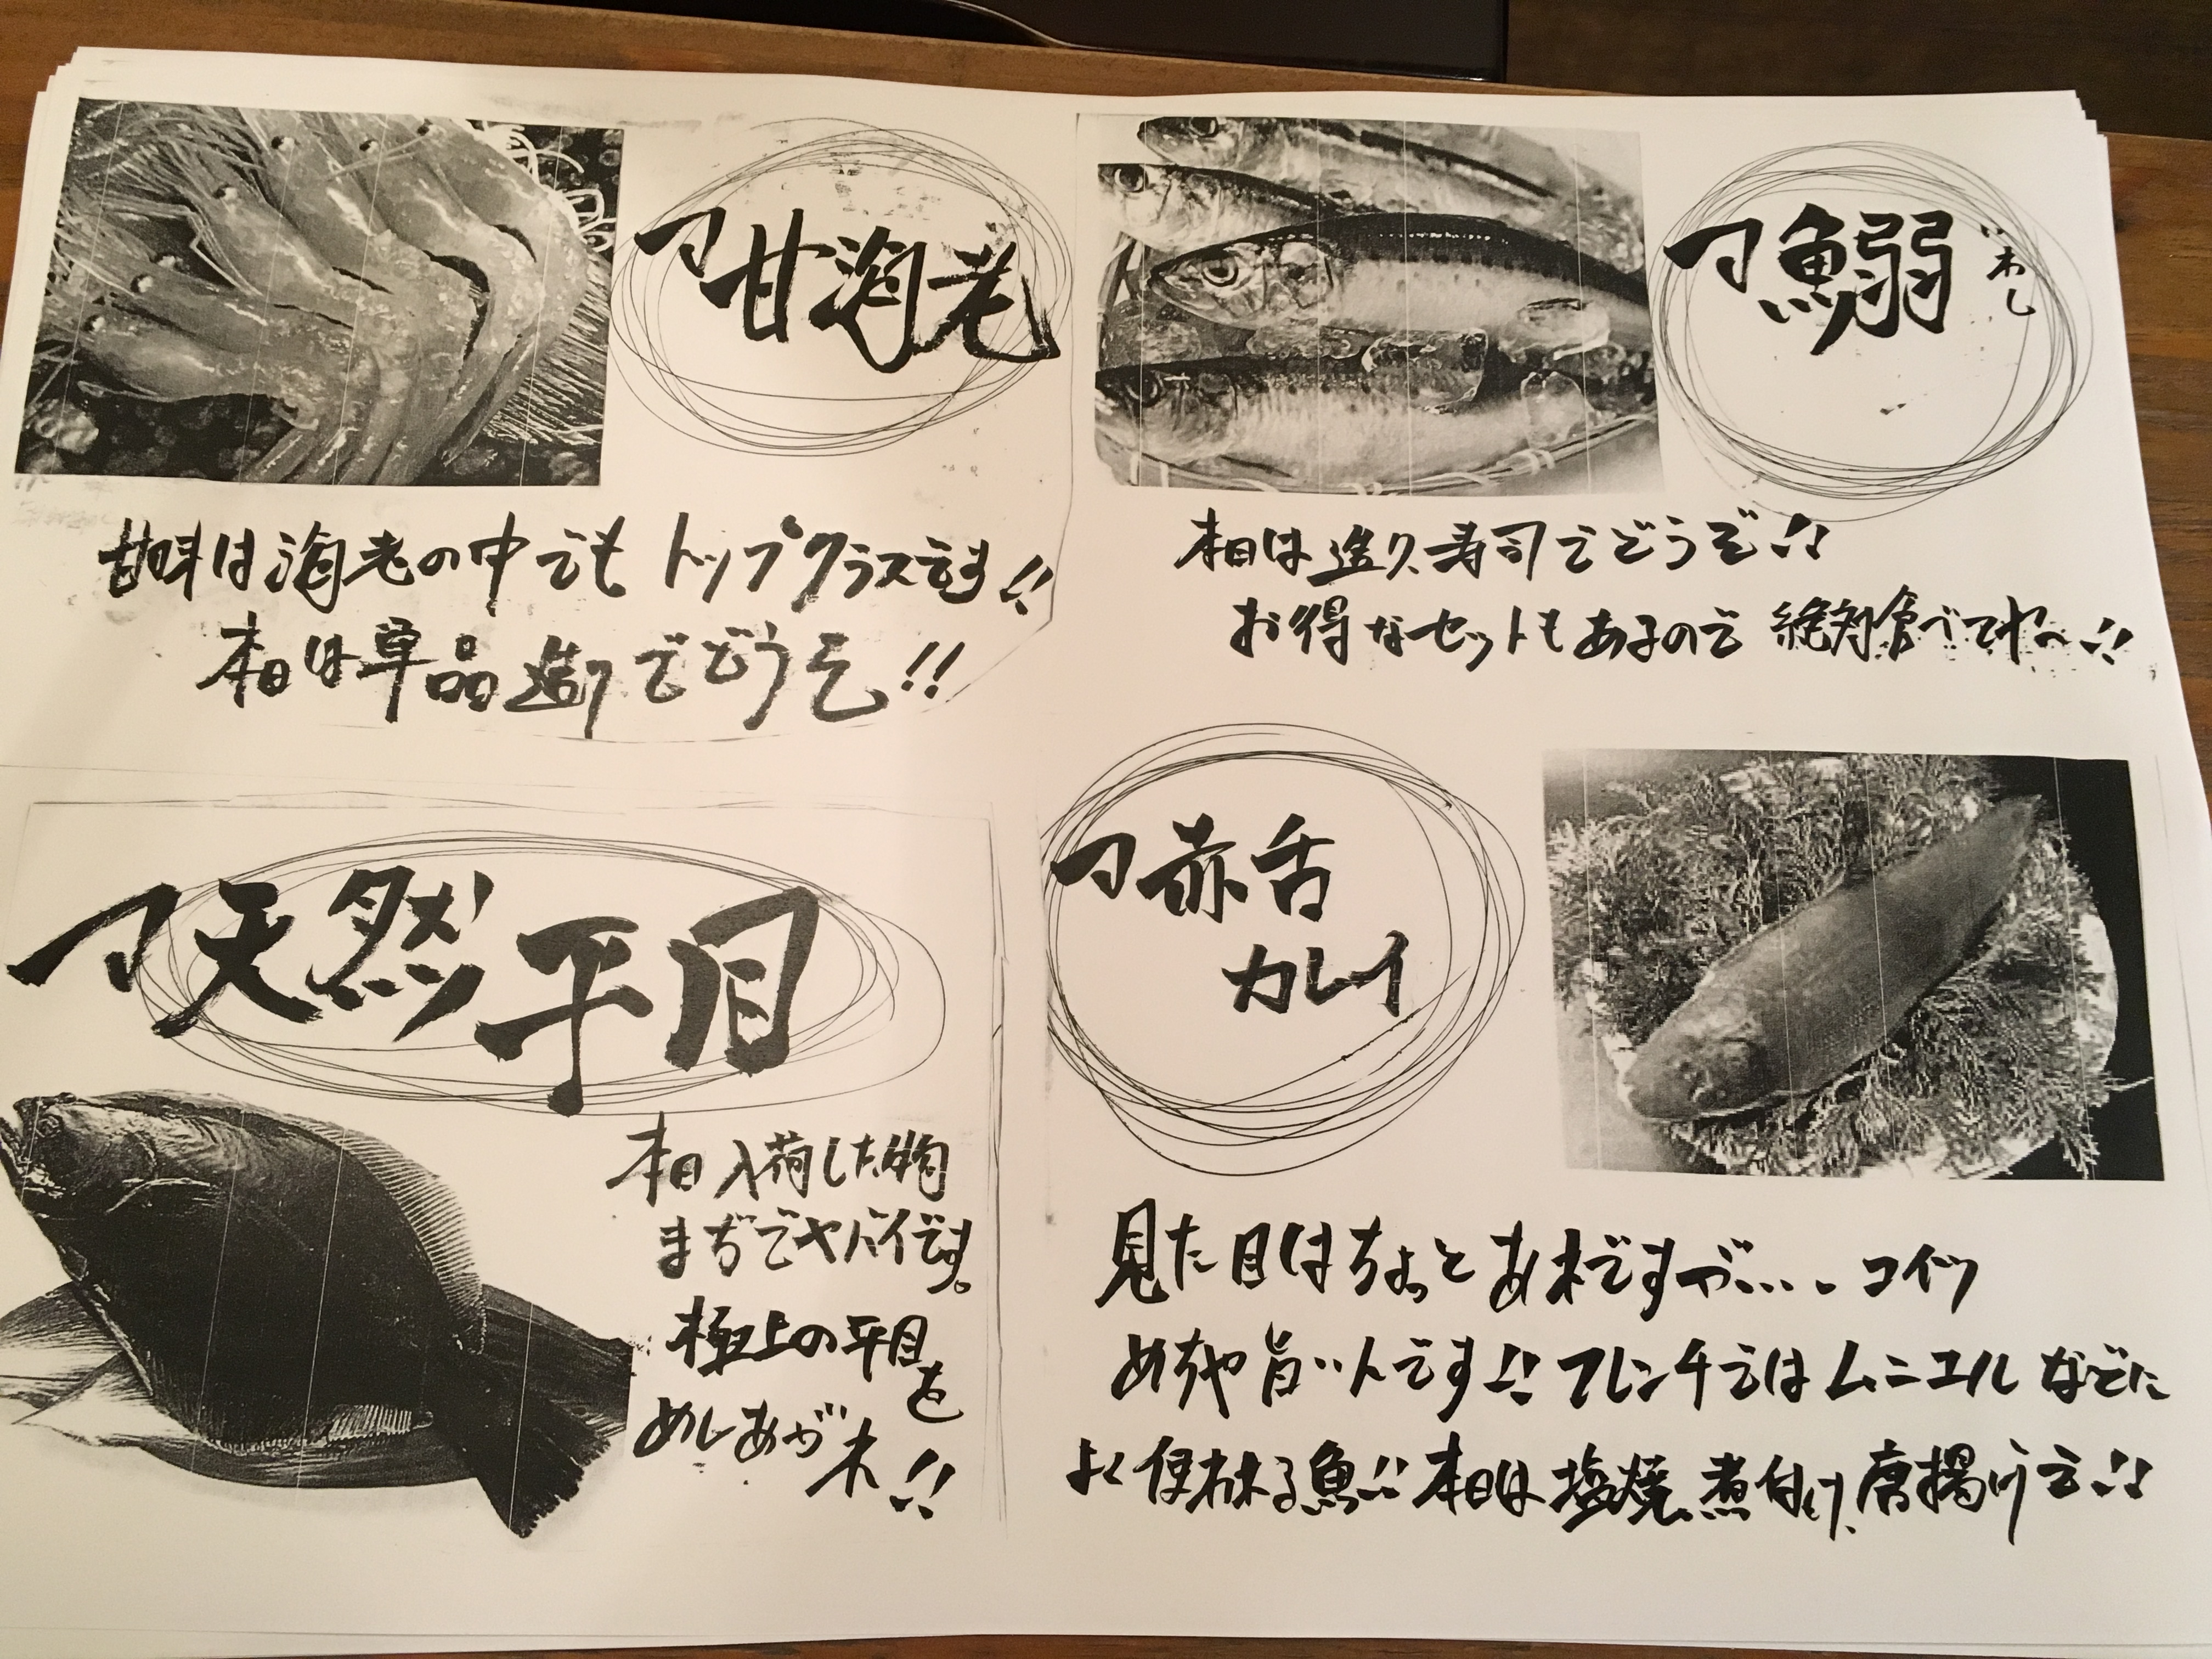 甘海老
甘味は海老の中でもトップクラスです!!
本日は単品造りでどうぞ!!
鰯 いわし
本日は造り、寿司でどうぞ!!
お得なセットもあるので 絶対食べてね〜!!
天然平目
本日入荷した物
まぢでヤバイです。
極上の平目を
めしあがれ!!
赤舌
カレイ
見た目はちょっとあれですが… コイツ
めちゃ旨いんです!! フレンチではムニエルなどに
よく使われる魚!! 本日は塩焼、煮付け、唐揚げで!!